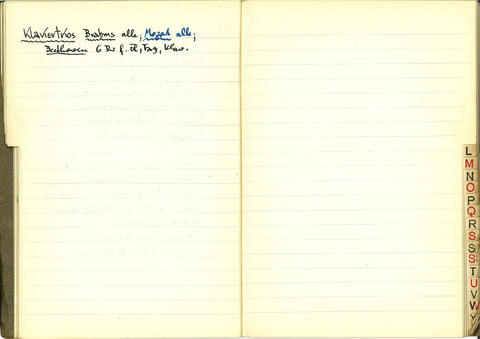 Klaviertrios Brahms alle; Mozart alle;
Beethoven G Dur f. Fl, Fag, Klav.
L
M
N
O
P
Q
R
S
S
S
T
U
V
W
Y